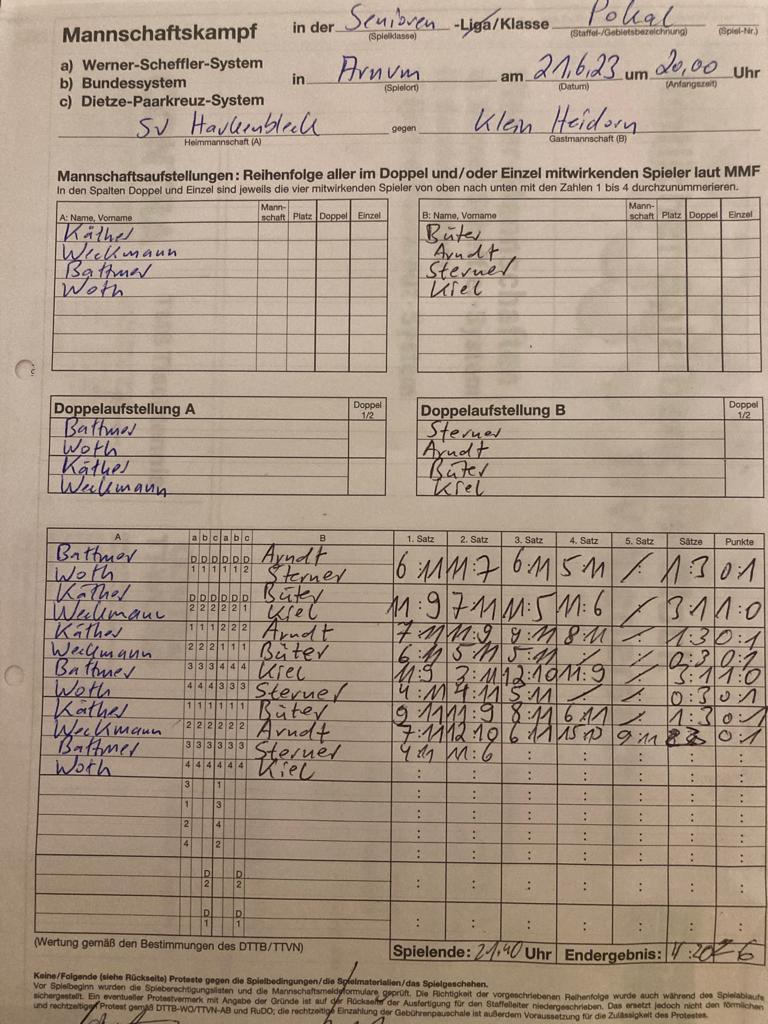 Mannschaftskampf in der Senioren -Liga/Klasse Pokal
(Spielklasse) (Staffel-/Gebietsbezeichnung) (Spiel-Nr.)
a) Werner-Scheffler-System
b) Bundessystem in Arnum am 21.6.23 um 20,00 Uhr
(Spielort) (Datum) (Anfangszeit)
c) Dietze-Paarkreuz-System
SV Harkenbleck gegen Klein Heidorn
Heimmannschaft (A) Gastmannschaft (B)
Mannschaftsaufstellungen: Reihenfolge aller im Doppel und/oder Einzel mitwirkenden Spieler laut MMF
In den Spalten Doppel und Einzel sind jeweils die vier mitwirkenden Spieler von oben nach unten mit den Zahlen 1 bis 4 durchzunummerieren.
A: Name, Vorname Mann-schaft Platz Doppel Einzel B: Name, Vorname Mann-schaft Platz Doppel Einzel
Käther Büter
Weckmann Arndt
Battmer Sterner
Woth Kiel
Doppelaufstellung A Doppel 1/2 Doppelaufstellung B Doppel 1/2
Battmer Sterner
Woth Arndt
Käther Büter
Weckmann Kiel
A a b c a b c B 1. Satz 2. Satz 3. Satz 4. Satz 5. Satz Sätze Punkte
Battmer D D D D D D Arndt
Woth 1 1 1 1 1 2 Sterner 6:11 11:7 6:11 5:11 / 1:3 0:1
Käther D D D D D D Büter
Weckmann 2 2 2 2 2 1 Kiel 11:9 7:11 11:5 11:6 / 3:1 1:0
Käther 1 1 1 2 2 2 Arndt 7:11 11:9 9:11 8:11 / 1:3 0:1
Weckmann 2 2 2 1 1 1 Büter 6:11 5:11 5:11 / / 0:3 0:1
Battmer 3 3 3 4 4 4 Kiel 11:9 3:11 12:10 11:9 / 3:1 1:0
Woth 4 4 4 3 3 3 Sterner 4:11 4:11 5:11 / / 0:3 0:1
Käther 1 1 1 1 1 1 Büter 9:11 11:9 8:11 6:11 / 1:3 0:1
Weckmann 2 2 2 2 2 2 Arndt 7:11 12:10 6:11 15:13 9:11 0:1
Battmer 3 3 3 3 3 3 Sterner 4:11 11:6 : : : : :
Woth 4 4 4 4 4 4 Kiel : : : : : : :
3 1 : : : : : : :
1 3 : : : : : : :
2 4 : : : : : : :
4 2 : : : : : : :
D 2 D 2 : : : : : : :
D 1 D 1 : : : : : : :
(Wertung gemäß den Bestimmungen des DTTB/TTVN) Spielende: 21.40 Uhr Endergebnis: 2:6
Keine/Folgende (siehe Rückseite) Proteste gegen die Spielbedingungen/die Spielmaterialien/das Spielgeschehen.
Vor Spielbeginn wurden die Spielberechtigungslisten und die Mannschaftsmeldeformulare geprüft. Die Richtigkeit der vorgeschriebenen Reihenfolge wurde auch während des Spielablaufs
sichergestellt. Ein eventueller Protestvermerk mit Angabe der Gründe ist auf der Rückseite der Ausfertigung für den Staffelleiter niedergeschrieben. Das ersetzt jedoch nicht den förmlichen
und rechtzeitigen Protest gemäß DTTB-WO/TTVN-AB und RuDO; die rechtzeitige Einzahlung der Gebührenpauschale ist außerdem Voraussetzung für die Zulässigkeit des Protestes.